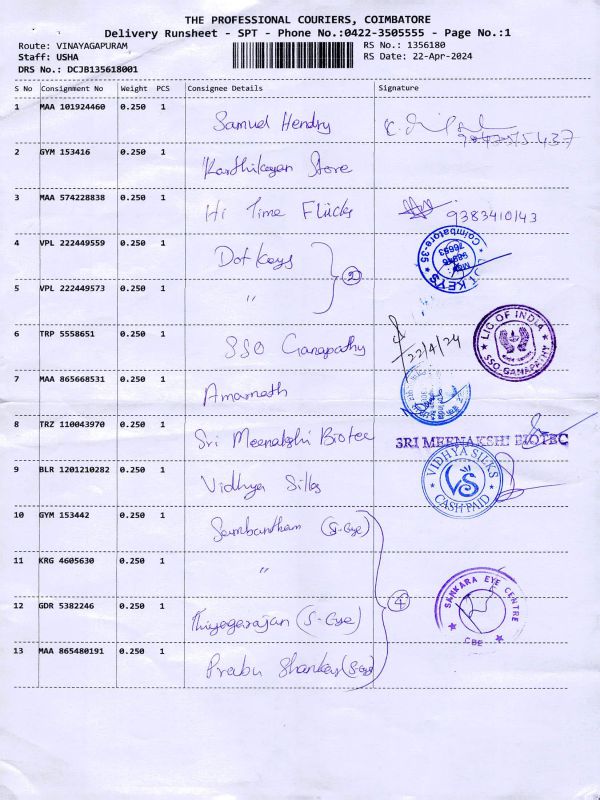 THE PROFESSIONAL COURIERS, COIMBATORE
Delivery Runsheet - SPT - Phone No.:0422-3505555 - Page No.:1
Route: VINAYAGAPURAM RS No.: 1356180
Staff: USHA RS Date: 22-Apr-2024
DRS No.: DCJB135618001
S No Consignment No Weight PCS Consignee Details Signature
1 MAA 101924460 0.250 1 Samuel Hendry
2 GYM 153416 0.250 1 Karthikeyan Store
3 MAA 574228838 0.250 1 Hi Time Flicks 9383410143
4 VPL 222449559 0.250 1 Dot Keys
Coimbatore-35
KEYS
5 VPL 222449573 0.250 1 "
2
6 TRP 5558651 0.250 1 SSO Ganapathy 22/4/24
LIC OF INDIA
SSO GANAPATHY
7 MAA 865668531 0.250 1 Amarnath
8 TRZ 110043970 0.250 1 Sri Meenakshi Biotec SRI MEENAKSHI BIOTEC
9 BLR 1201210282 0.250 1 Vidhya Silks
VIDHYA SILKS
VS
CASH PAID
10 GYM 153442 0.250 1 Sambantham (S-Eye)
11 KRG 4605630 0.250 1 "
4
12 GDR 5382246 0.250 1 Thiyagarajan (S-Eye)
SANKARA EYE CENTRE
CBE
13 MAA 865480191 0.250 1 Prabu Shankar (S-Eye)